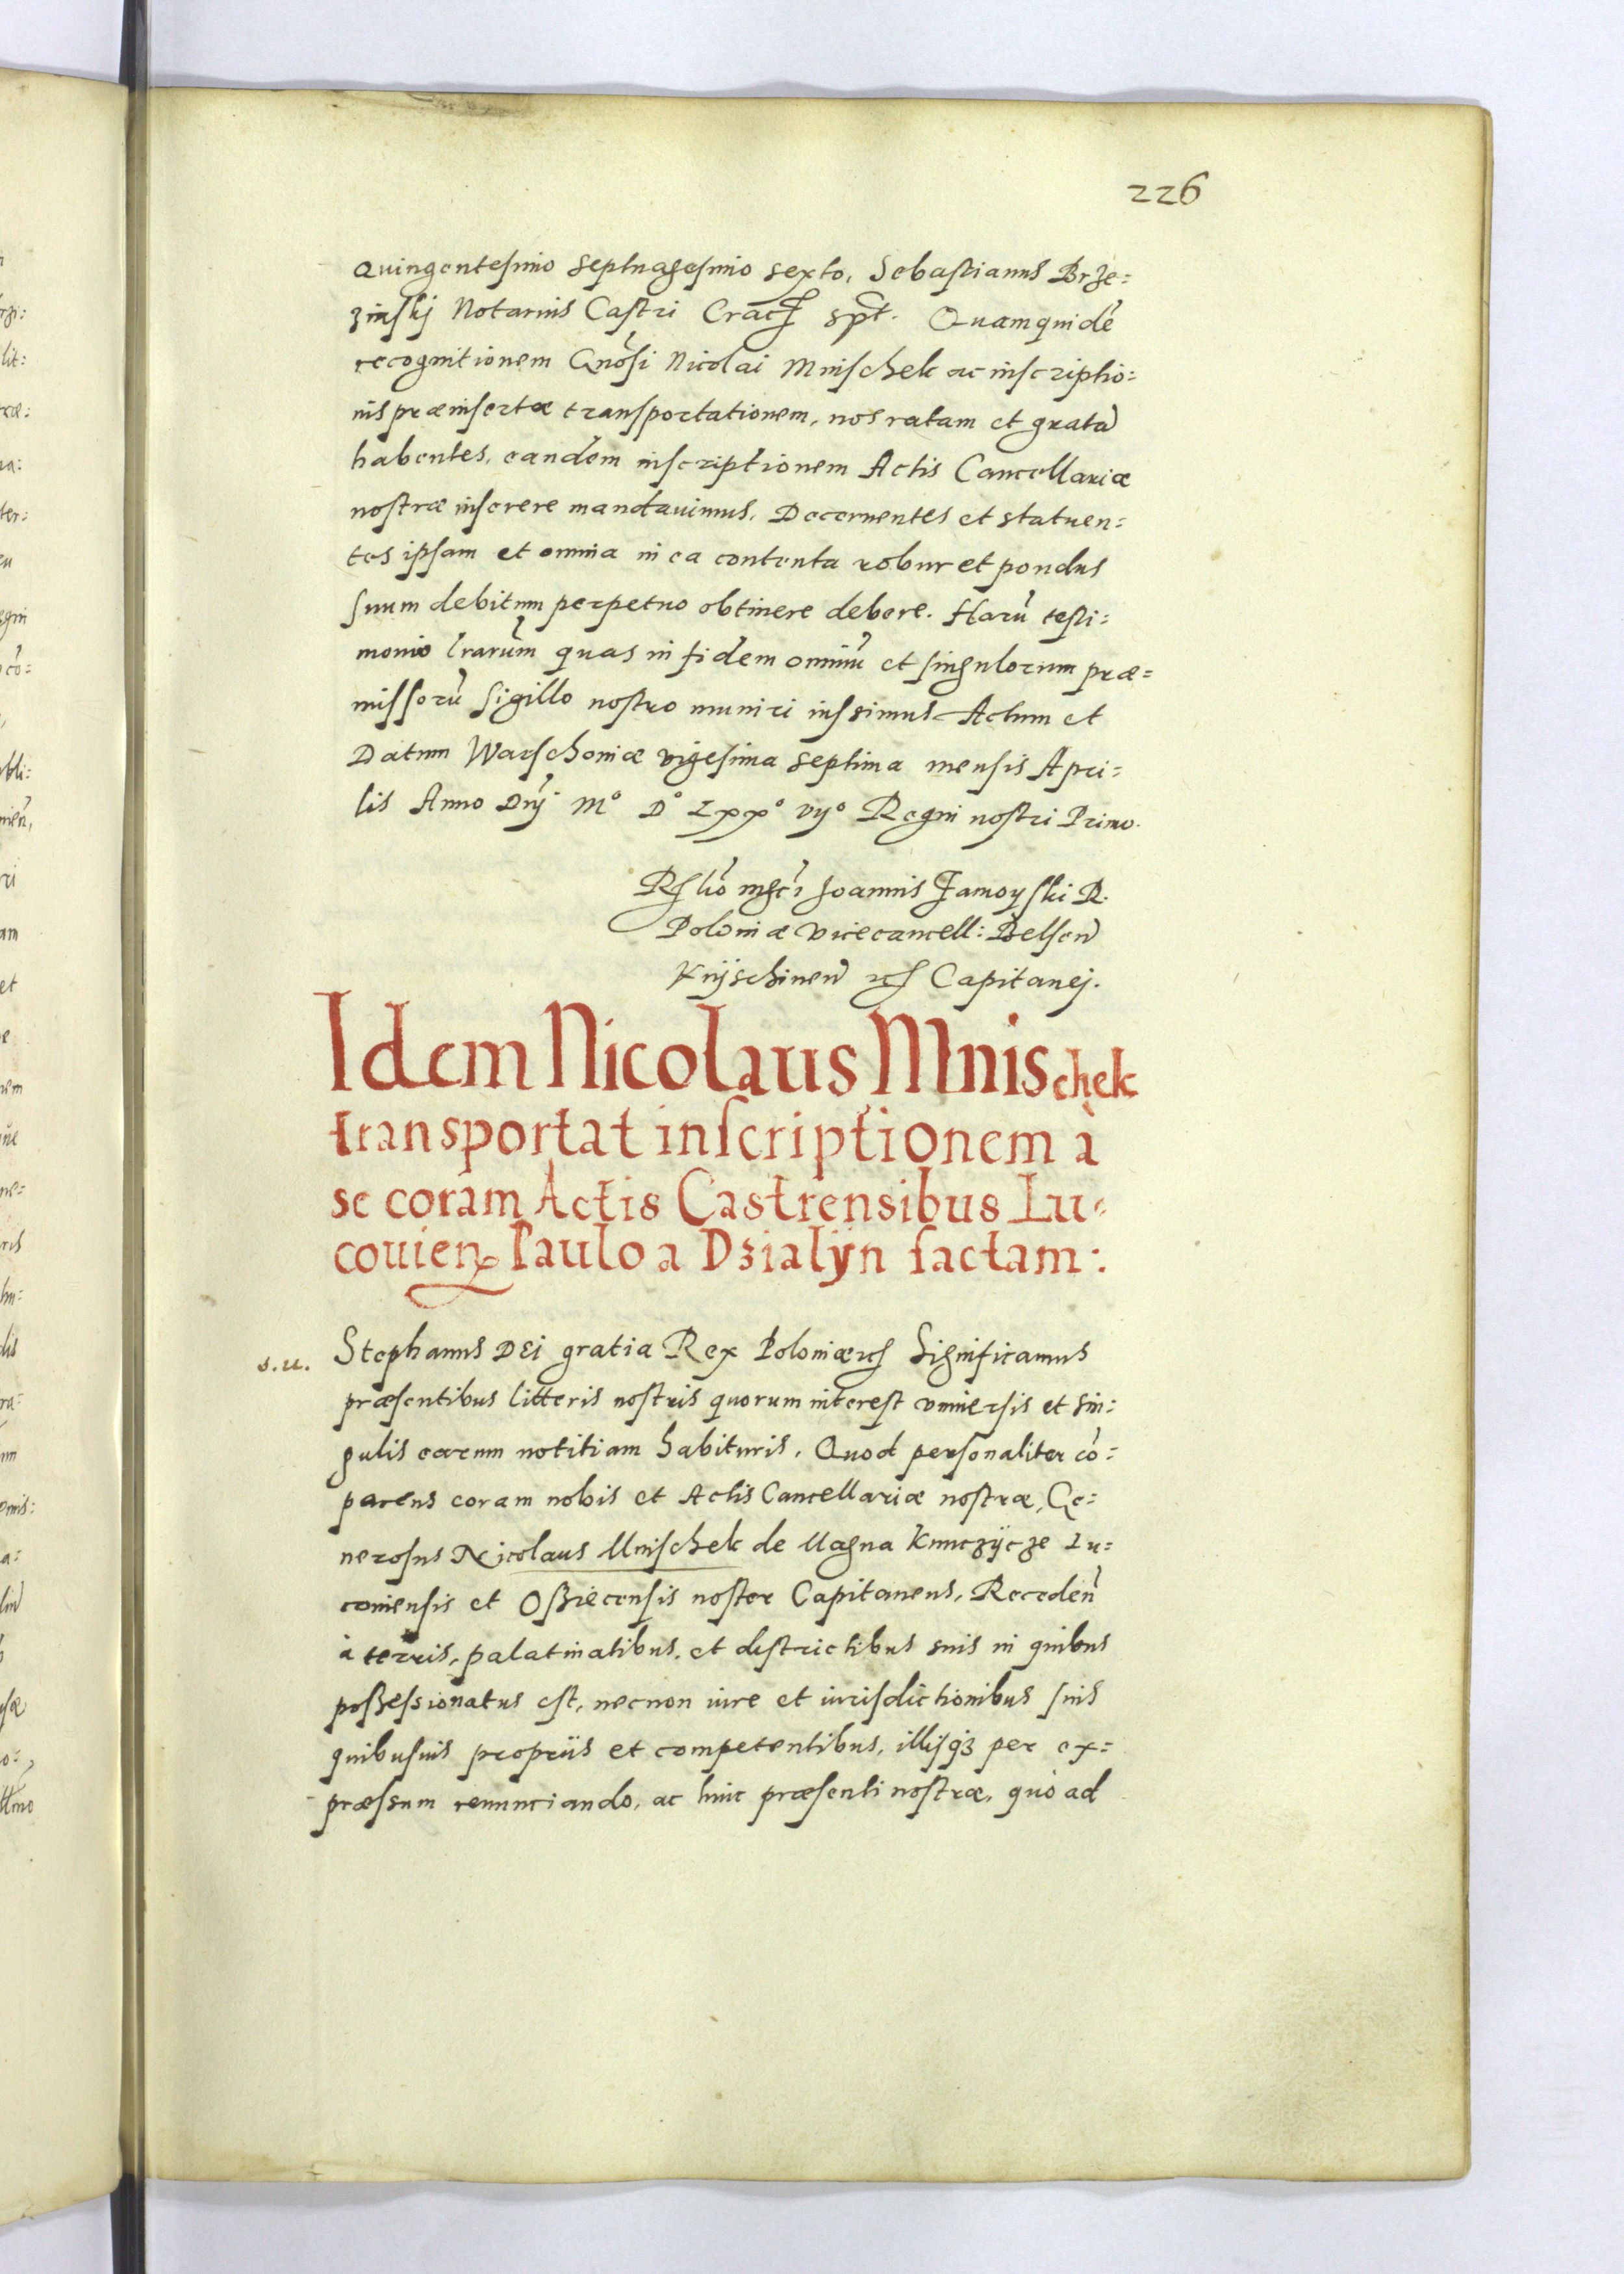 226
Quingentesimo Septuagesimo sexto, Sebastianus Brze=
zinskij Notarius Castri Crac spt. Quamquidē
recognitionem Gnosi Nicolai Mnischek ac inscriptio=
nis præinsertæ transportationem, nos ratam et gratā
habentes, eandem inscriptionem Actis Cancellariæ
nostræ inserere mandauimus, Decernentes et statuen=
tes ipsam et omnia in ea contenta robur et pondus
suum debitum perpetuo obtinere debere. Harū testi=
monio lrarum quas in fidem omniū et singulorum præ=
missorū Sigillo nostro muniri iussimus Actum et
Datum Warschouiæ vigesima septima mensis Apri=
lis Anno Dnj M° D° Lxx° vij° Regni nostri Primo.
Rlō mgci Joannis Zamoyski R.
Poloniæ Vicecancell: Belsen̄
Knijschinen̄ Capitanej.
Idem Nicolaus Mnischek
transportat inscriptionem à
se coram Actis Castrensibus Lu=
couien Paulo a Dzialyn factam:
s.u. Stephanus DEi gratia Rex Poloniæ Significamus
præsentibus litteris nostris quorum interest vniuersis et sin=
gulis earum notitiam habituris. Quod personaliter cō=
parens coram nobis et Actis Cancellariæ nostræ, Ge=
nerosus Nicolaus Mnischek de Magna Kunczÿcze Lu=
couiensis et Oßiecensis noster Capitaneus, Receden̄
à terris, palatinatibus, et districtibus suis in quibus
poßessionatus est, necnon iure et iurisdictionibus suis
quibusuis propriis et competentibus, illisqз per ex=
præssum renunciando, ac huic præsenti nostræ, quò ad